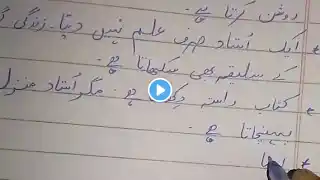 روشن کرتا ہے۔
* ایک استاد صرف علم نہیں دیتا۔ زندگی
کے سلیقے بھی سکھاتا ہے
* کتاب راستہ دکھاتی ہے۔ مگر استاد منزل
پہنچاتا ہے۔